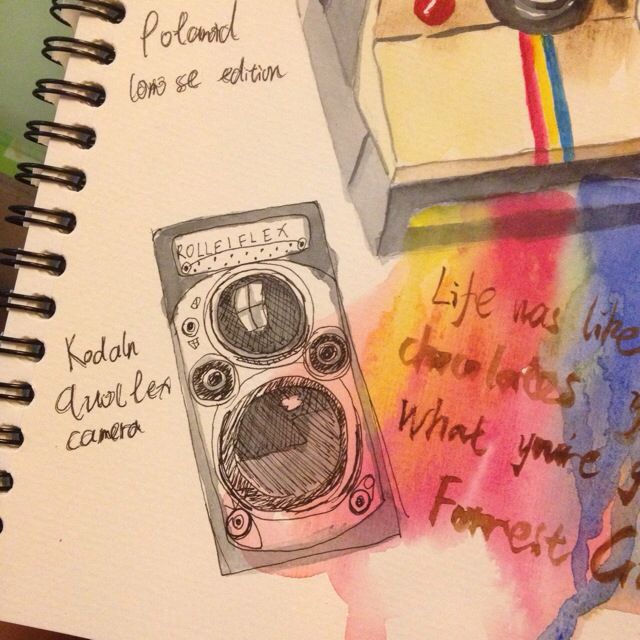 Polanoid
se edition
ROLLEIFLEX
Kodaln
camera
Life was like
chocolates y
What you're g
Forrest G